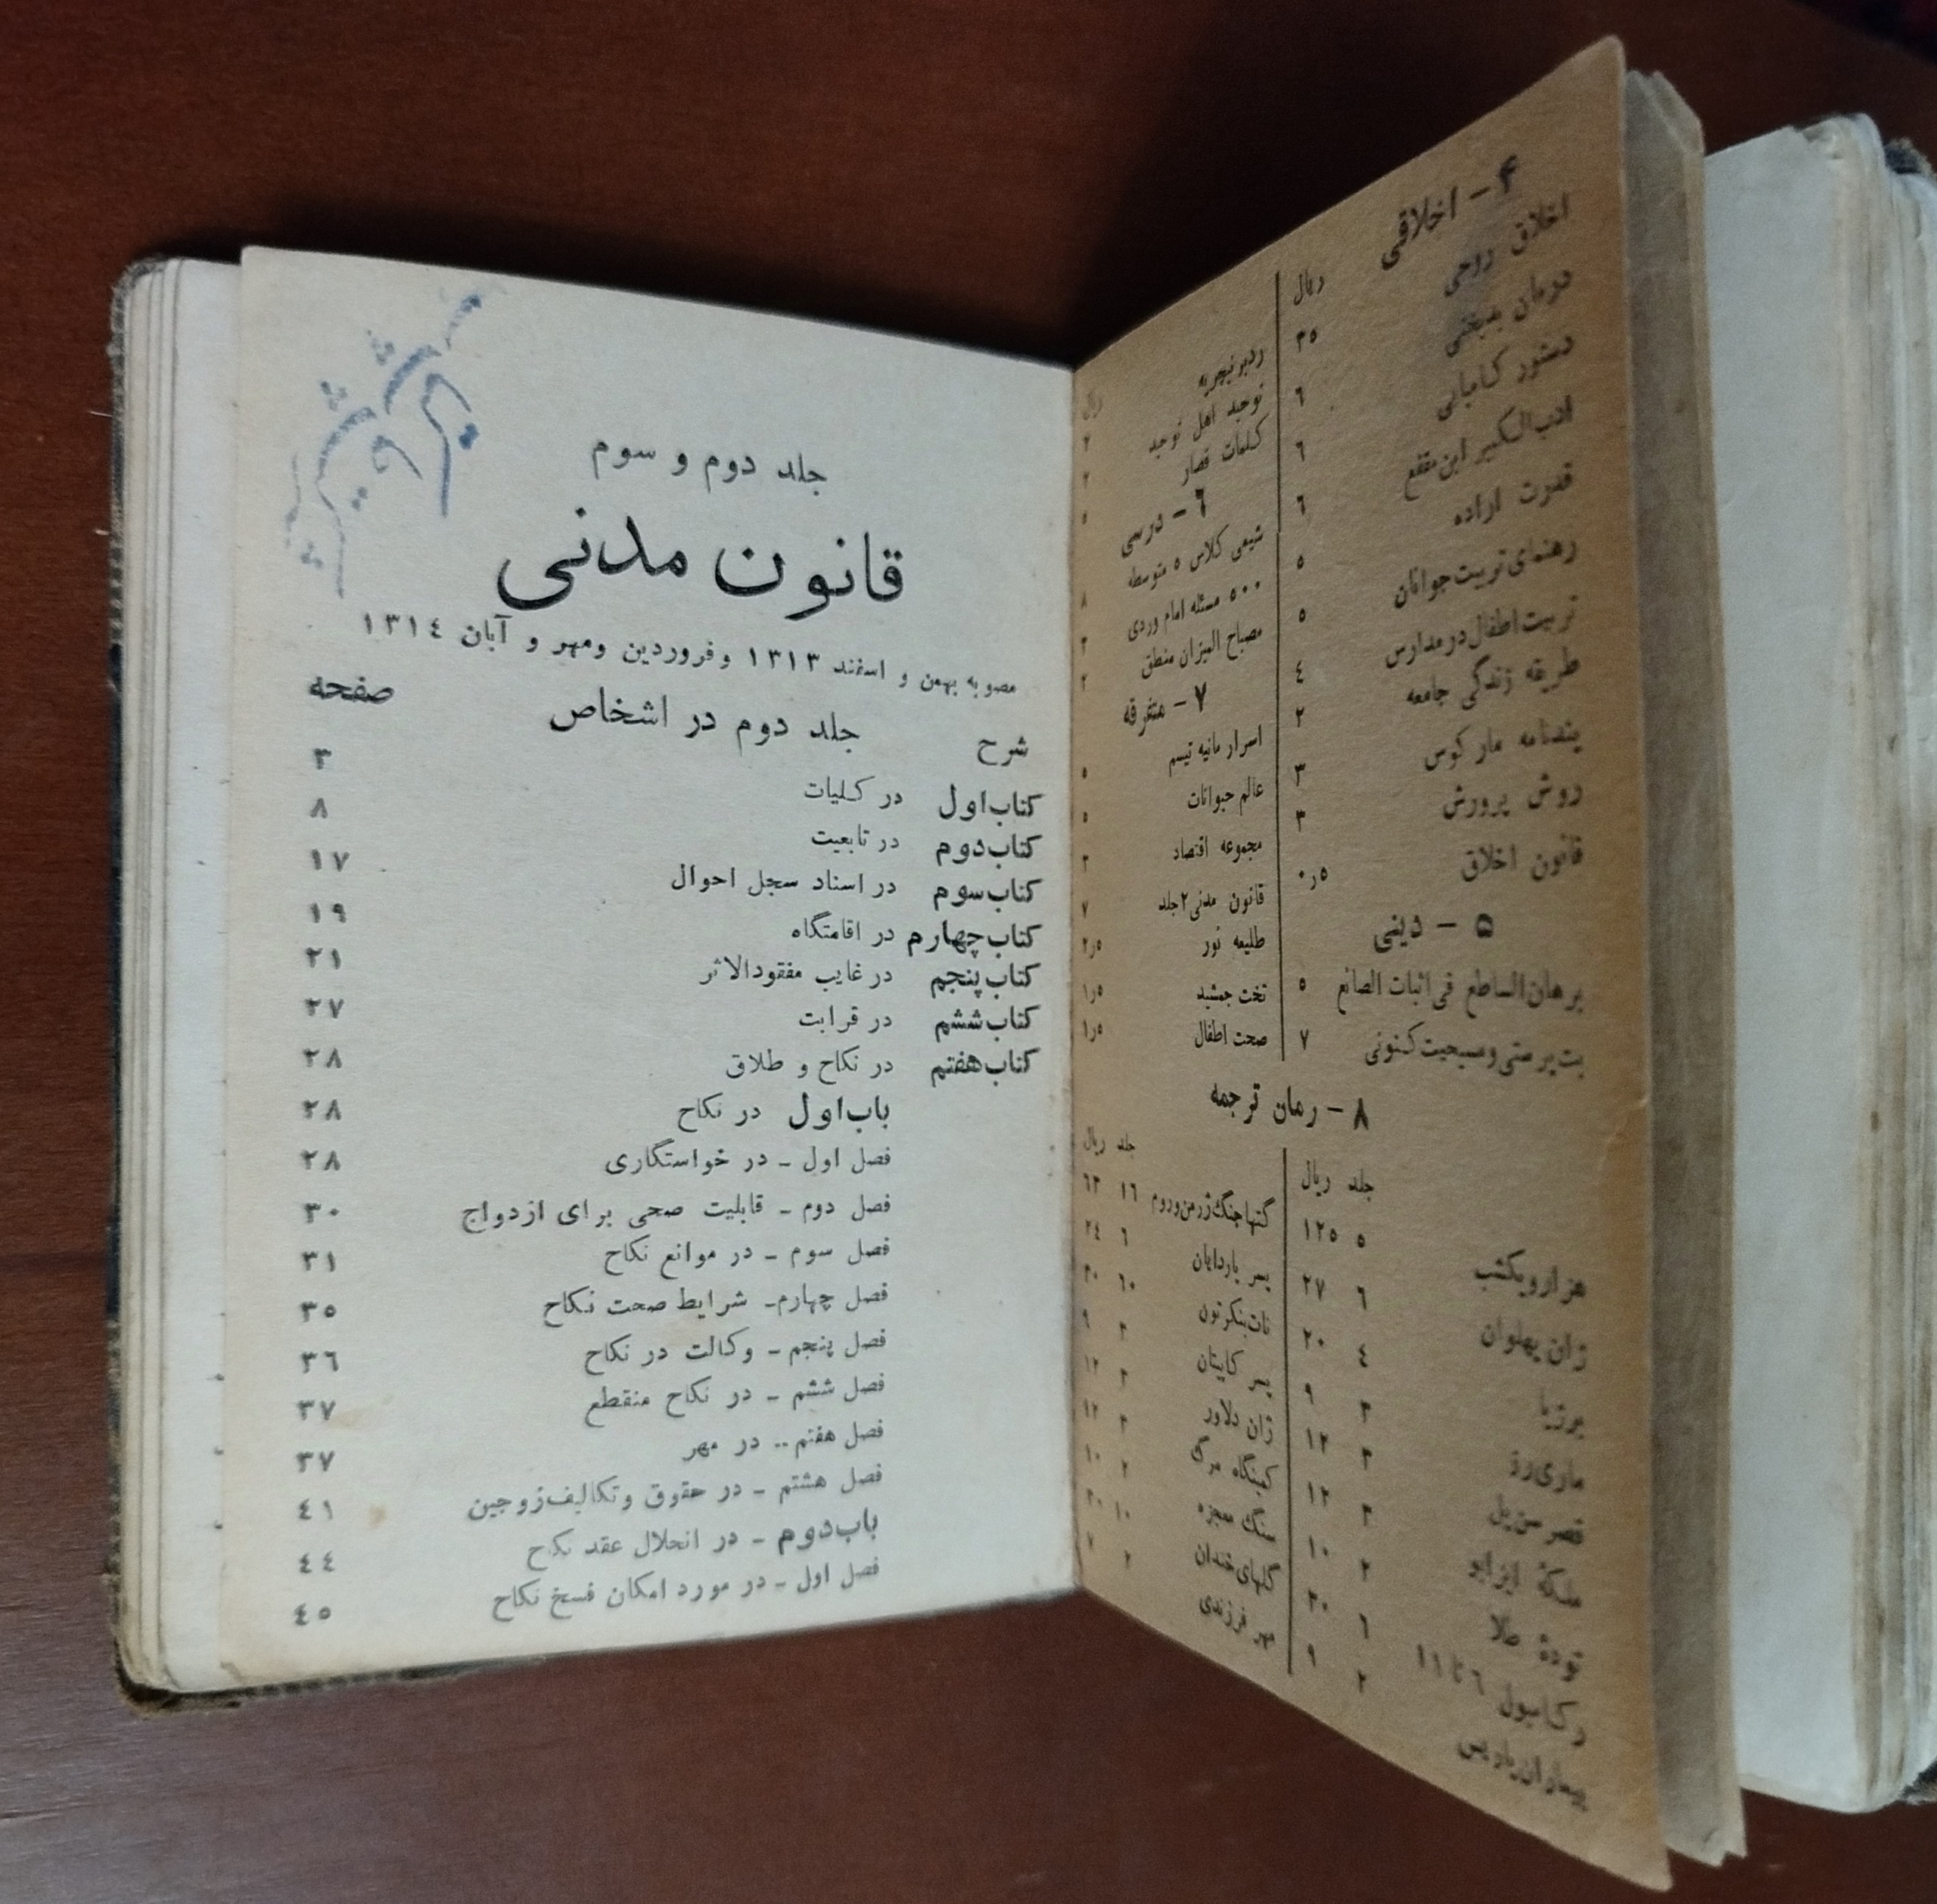 ۴ - اخلاقی
ریال
اخلاق روحی ۳۵
درمان بدبختی ٦
دستور کامیابی ٦
ادب‌الکبیر ابن‌مقفع ٦
قدرت اراده ٥
رهنمای تربیت جوانان ٥
تربیت اطفال در مدارس ٤
طریقه زندگی جامعه ۲
پندنامه مارکوس ۳
روش پرورش ۳
قانون اخلاق ٥ر۰
۵ - دینی
برهان‌الساطع فی اثبات الصانع ٥
بت‌پرستی و مسیحیت کنونی ۷
ریال
ردبر نیچریه ۲
توحید اهل توحید ۲
کلمات قصار ٥
٦ - درسی
شیمی کلاس ٥ متوسطه ۸
٥۰۰ مسئله امام وردی ۳
مصباح المیزان منطق ۲
۷ - متفرقه
اسرار مانیه تیسم ٥
عالم حیوانات ٥
مجموعه اقتصاد ۳
قانون مدنی ۲ جلد ۷
طلیعه نور ٥ر۲
تخت جمشید ٥ر۱
صحت اطفال ٥ر۱
۸ - رمان ترجمه
جلد ریال
هزار و یکشب ٥ ۱۲٥
ژان پهلوان ٦ ۲۷
برژیا ٤ ۲۰
ماری رز ۳ ۹
قصر سن‌یل ۳ ۱۲
ملکهٔ ایزابو ۳ ۱۲
تودهٔ طلا ۲ ۱۰
رکامبول ٦ تا ۱۱ ٦ ۳۰
۲ ۹
جلد ریال
گتها جنگ ژرمن و روم ۱٦ ٦۳
پسر پاردایان ٦ ۲٤
نات‌پنکرتون ٦۰ ۳۰
پسر کاپیتان ۳ ۹
ژان دلاور ۳ ۱۲
کمینگاه مرگ ۳ ۱۲
سنگ معجزه ۲ ۱۰
گلهای خندان ۱۰ ۳۰
مهر فرزندی ۲ ۷
جلد دوم و سوم
قانون مدنی
مصوبه بهمن و اسفند ۱۳۱۳ و فروردین و مهر و آبان ۱۳۱٤
شرح جلد دوم در اشخاص صفحه
کتاب اول در کلیات ۳
کتاب دوم در تابعیت ۸
کتاب سوم در اسناد سجل احوال ۱۷
کتاب چهارم در اقامتگاه ۱۹
کتاب پنجم در غایب مفقودالاثر ۲۱
کتاب ششم در قرابت ۲۷
کتاب هفتم در نکاح و طلاق ۲۸
باب اول در نکاح ۲۸
فصل اول - در خواستگاری ۲۸
فصل دوم - قابلیت صحی برای ازدواج ۳۰
فصل سوم - در موانع نکاح ۳۱
فصل چهارم- شرایط صحت نکاح ۳٥
فصل پنجم - وکالت در نکاح ۳٦
فصل ششم - در نکاح منقطع ۳۷
فصل هفتم - در مهر ۳۷
فصل هشتم - در حقوق و تکالیف زوجین ٤۱
باب دوم - در انحلال عقد نکاح ٤٤
فصل اول - در مورد امکان فسخ نکاح ٤٥